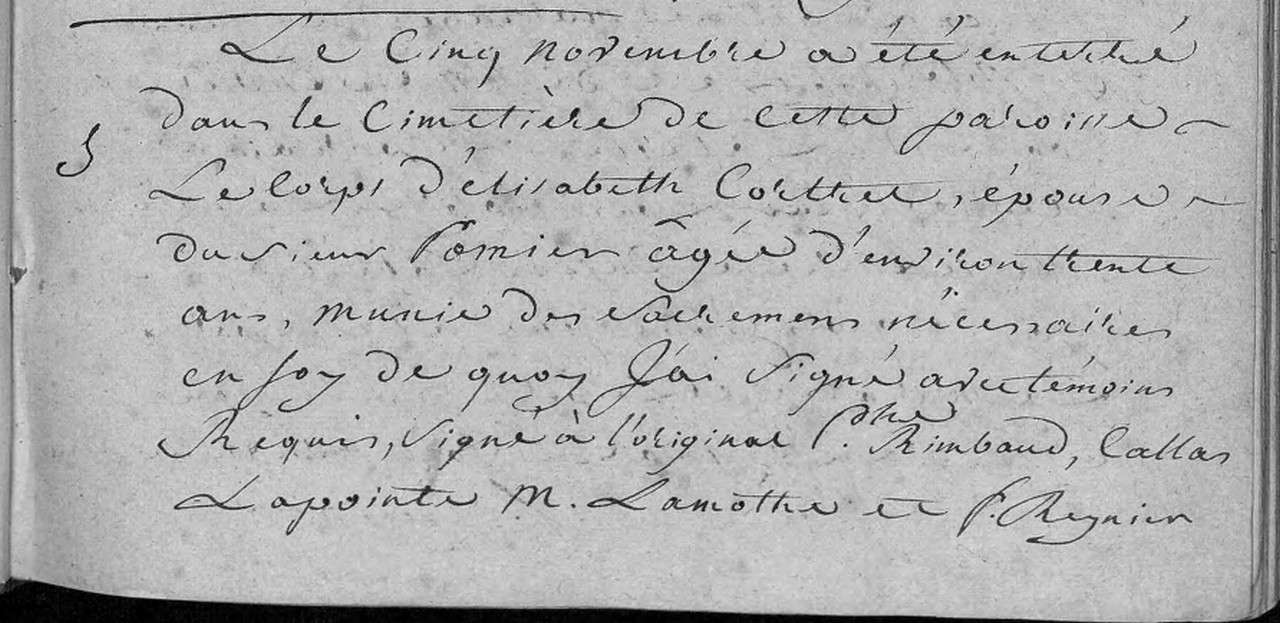 Le Cinq novembre a été enterré
dans le Cimetière de cette paroisse
5
Le Corps d'élisabeth Corthet, épouse
du sieur Pomier âgée d'environ trente
ans, munie des sacremens nécessaires
en foy de quoy J'ai signé avec témoins
Requis, signé à l'original Rimbaud, Callas
Lapointe M. Lamothe et f. Regnier